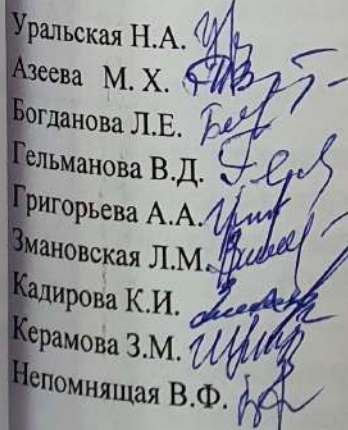 Уральская Н.А.
Азеева М. Х.
Богданова Л.Е.
Гельманова В.Д.
Григорьева А.А.
Змановская Л.М.
Кадирова К.И.
Керамова З.М.
Непомнящая В.Ф.